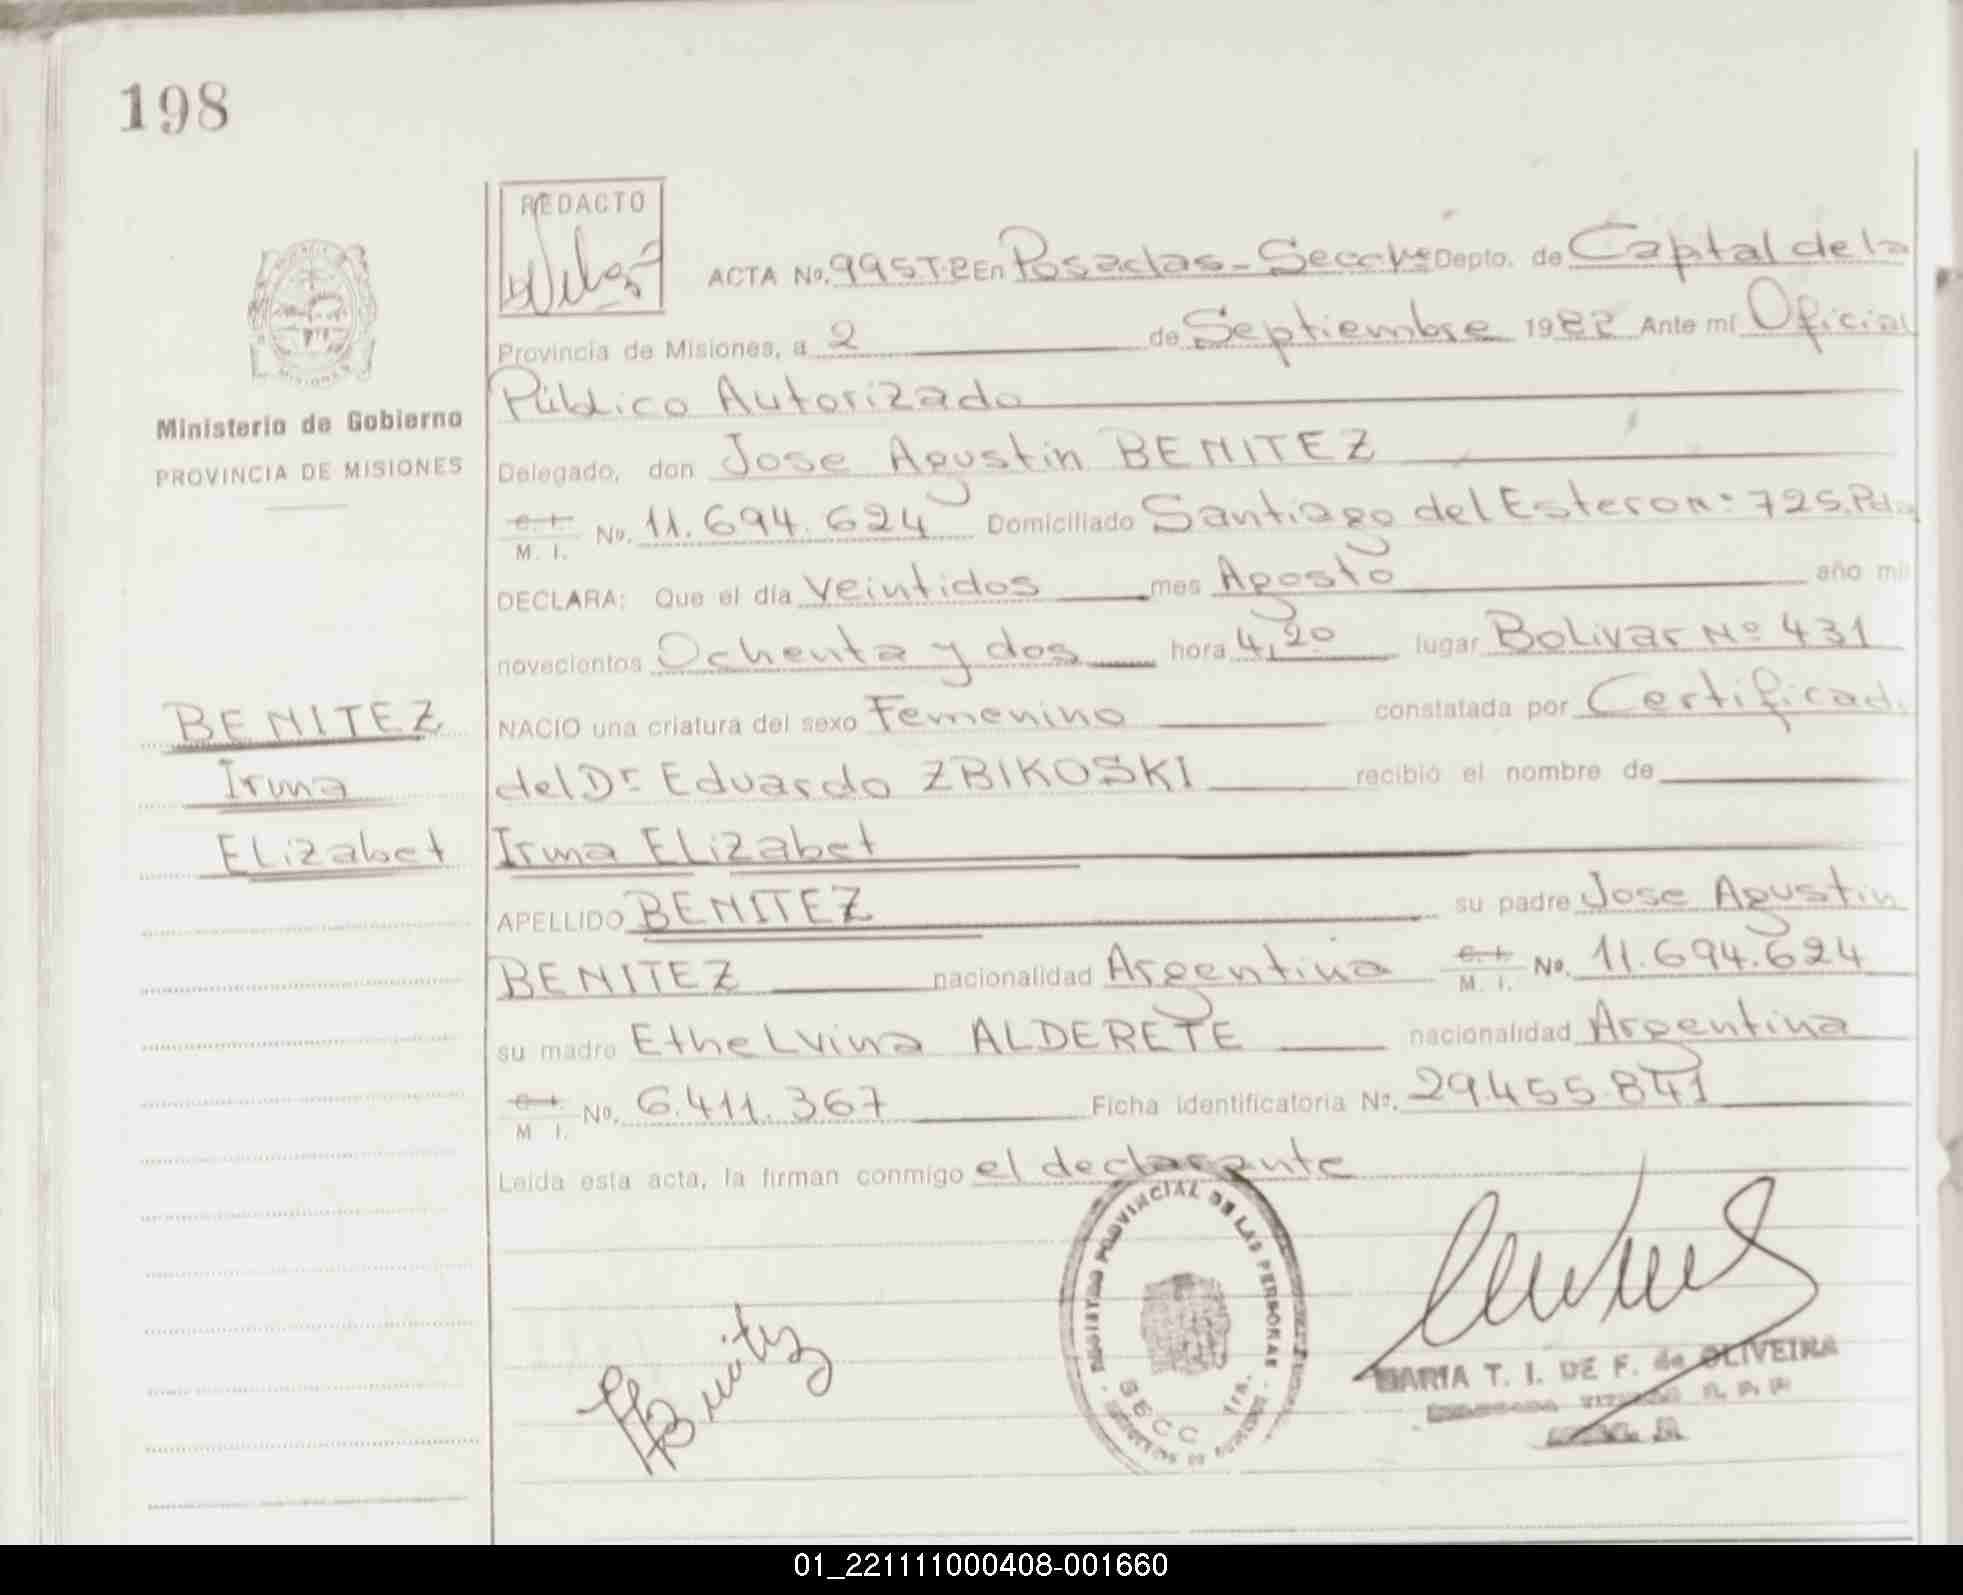 198
REDACTO
ACTA No. 995 T·2 En Posadas - Secc 1ra Depto. de Capital de la
Provincia de Misiones, a 2 de Septiembre 1982 Ante mí Oficial
Público Autorizado
Ministerio de Gobierno
PROVINCIA DE MISIONES
Delegado, don Jose Agustin BENITEZ
C. I. M. I. No. 11.694.624 Domiciliado Santiago del Estero n: 725. Pdas
DECLARA: Que el día veintidos mes Agosto año mil
novecientos Ochenta y dos hora 4,20 lugar Bolivar Nº 431
NACIO una criatura del sexo Femenino constatada por Certificado
del Dr Eduardo ZBIKOSKI recibió el nombre de
Irma ELizabet
BENITEZ
Irma
ELizabet
APELLIDO BENITEZ su padre Jose Agustin
BENITEZ nacionalidad Argentina C. I. M. I. No. 11.694.624
su madre EtheLvina ALDERETE nacionalidad Argentina
C. I. M I. No. 6.411.367 Ficha identificatoria No. 29.455.841
Leída esta acta, la firman conmigo el declarante
REGISTRO PROVINCIAL DE LAS PERSONAS
SECC 1ra.
Benitez
MARIA T. I. DE F. de OLIVEIRA
01_221111000408-001660